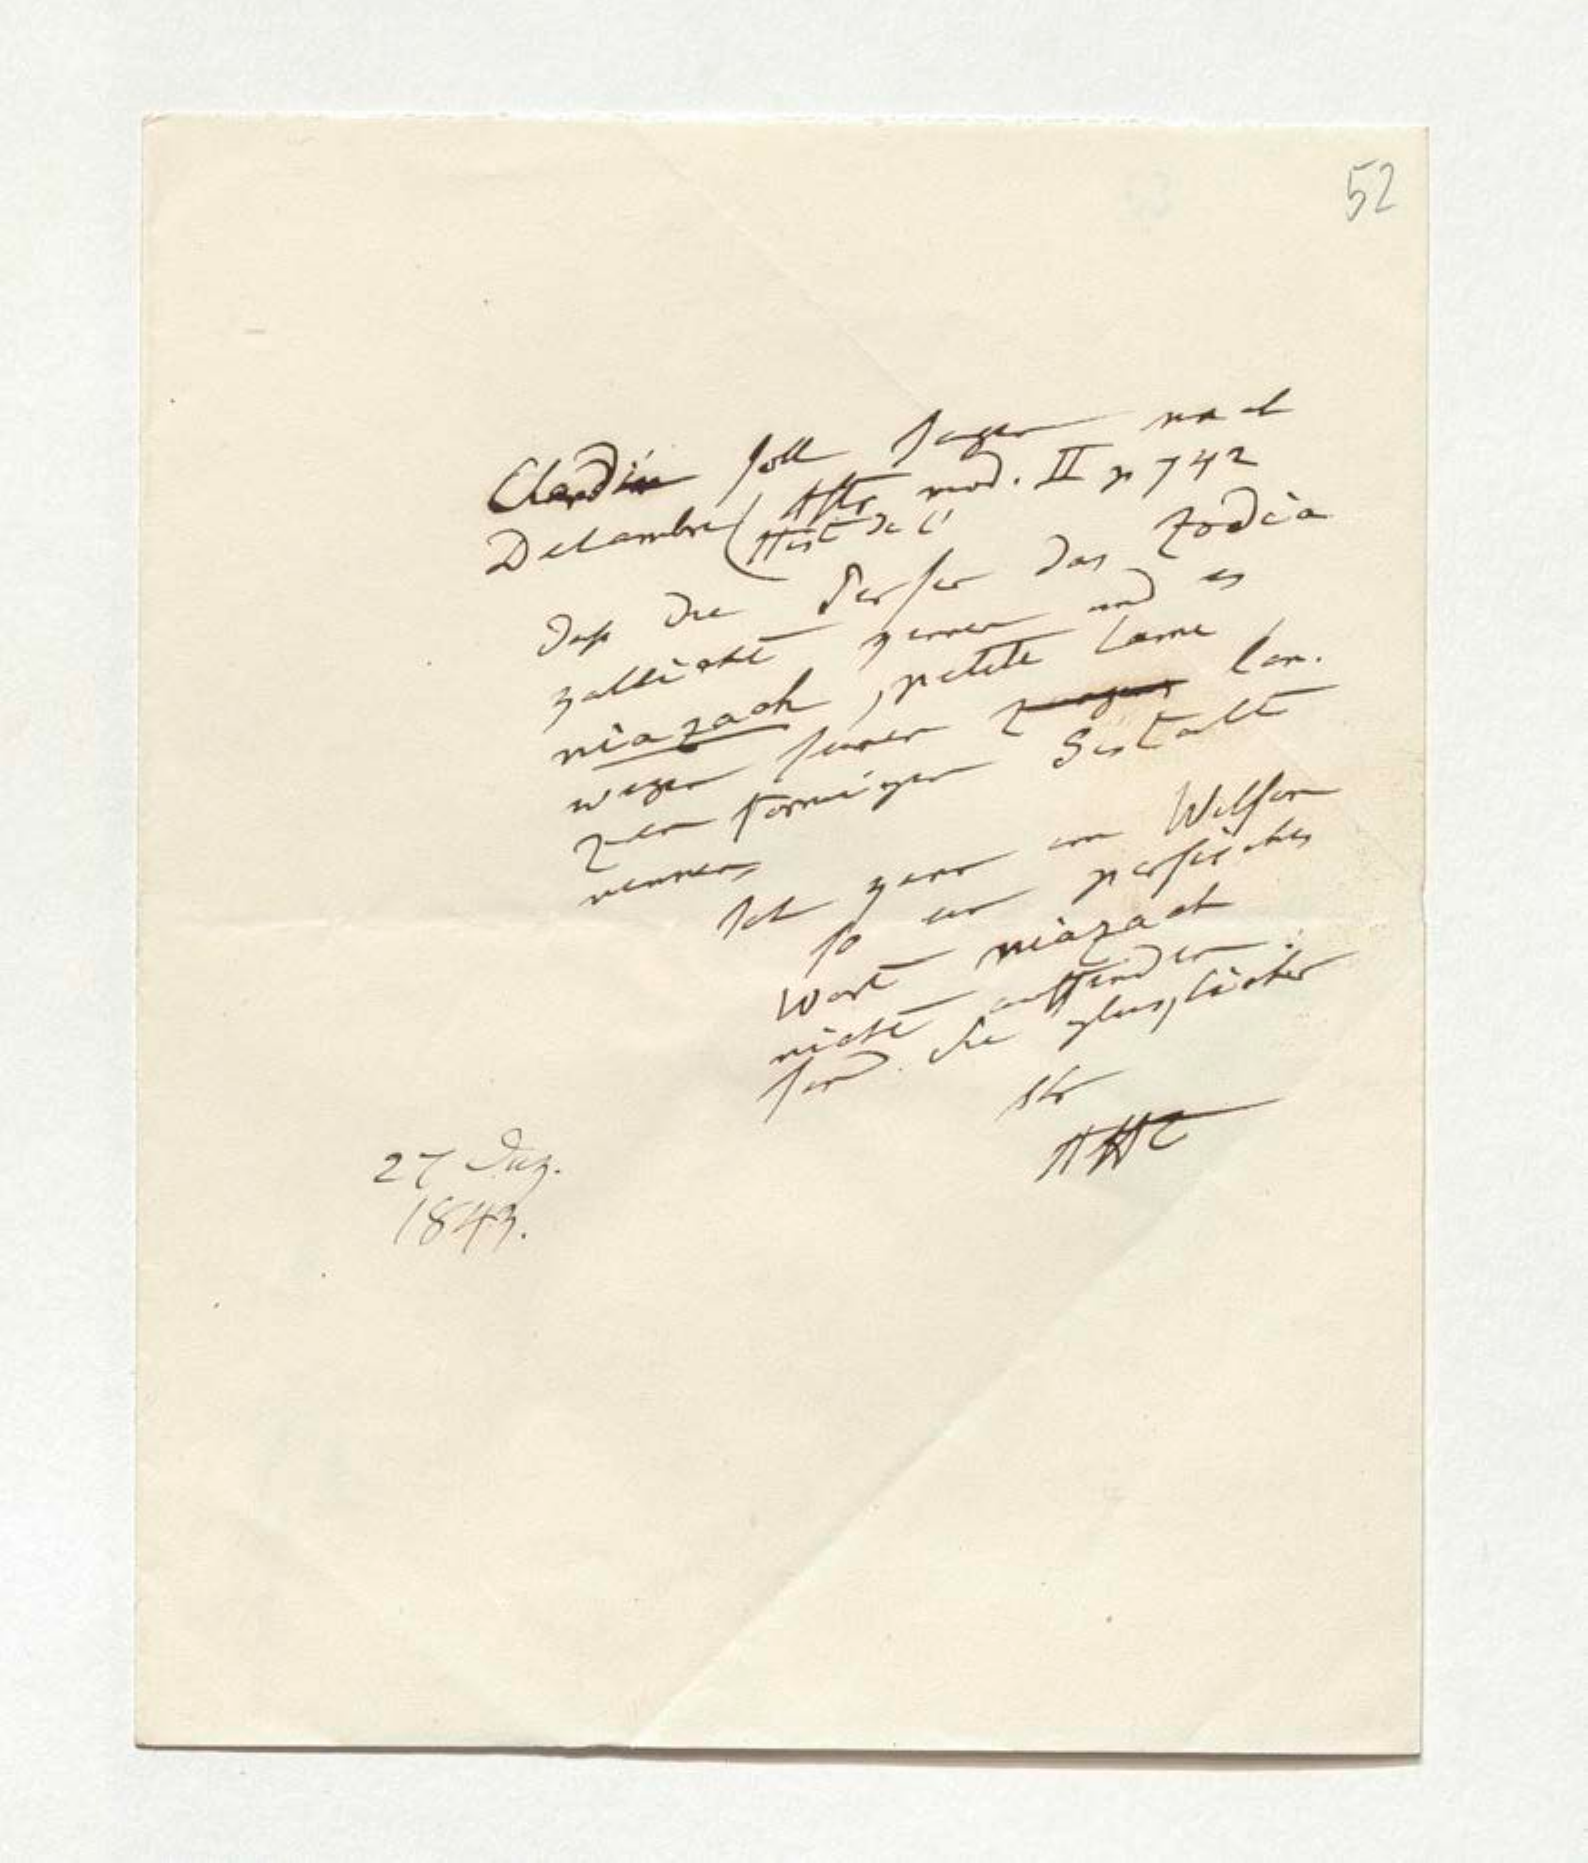 52
Chardin soll sagen nach
Delambre (Hist de l'
Astr mod. II p 742
daß die Perser das Zodia
kallicht kennen und es
niazach, petite lame
wegen seiner lan-
zen förmigen Gestalt
nennen
Ich kann im
so ein persisches
Wort niazach
nicht auffinden.
Sind Sie glücklicher
Ihr
AHt
27 Dez.
1843.